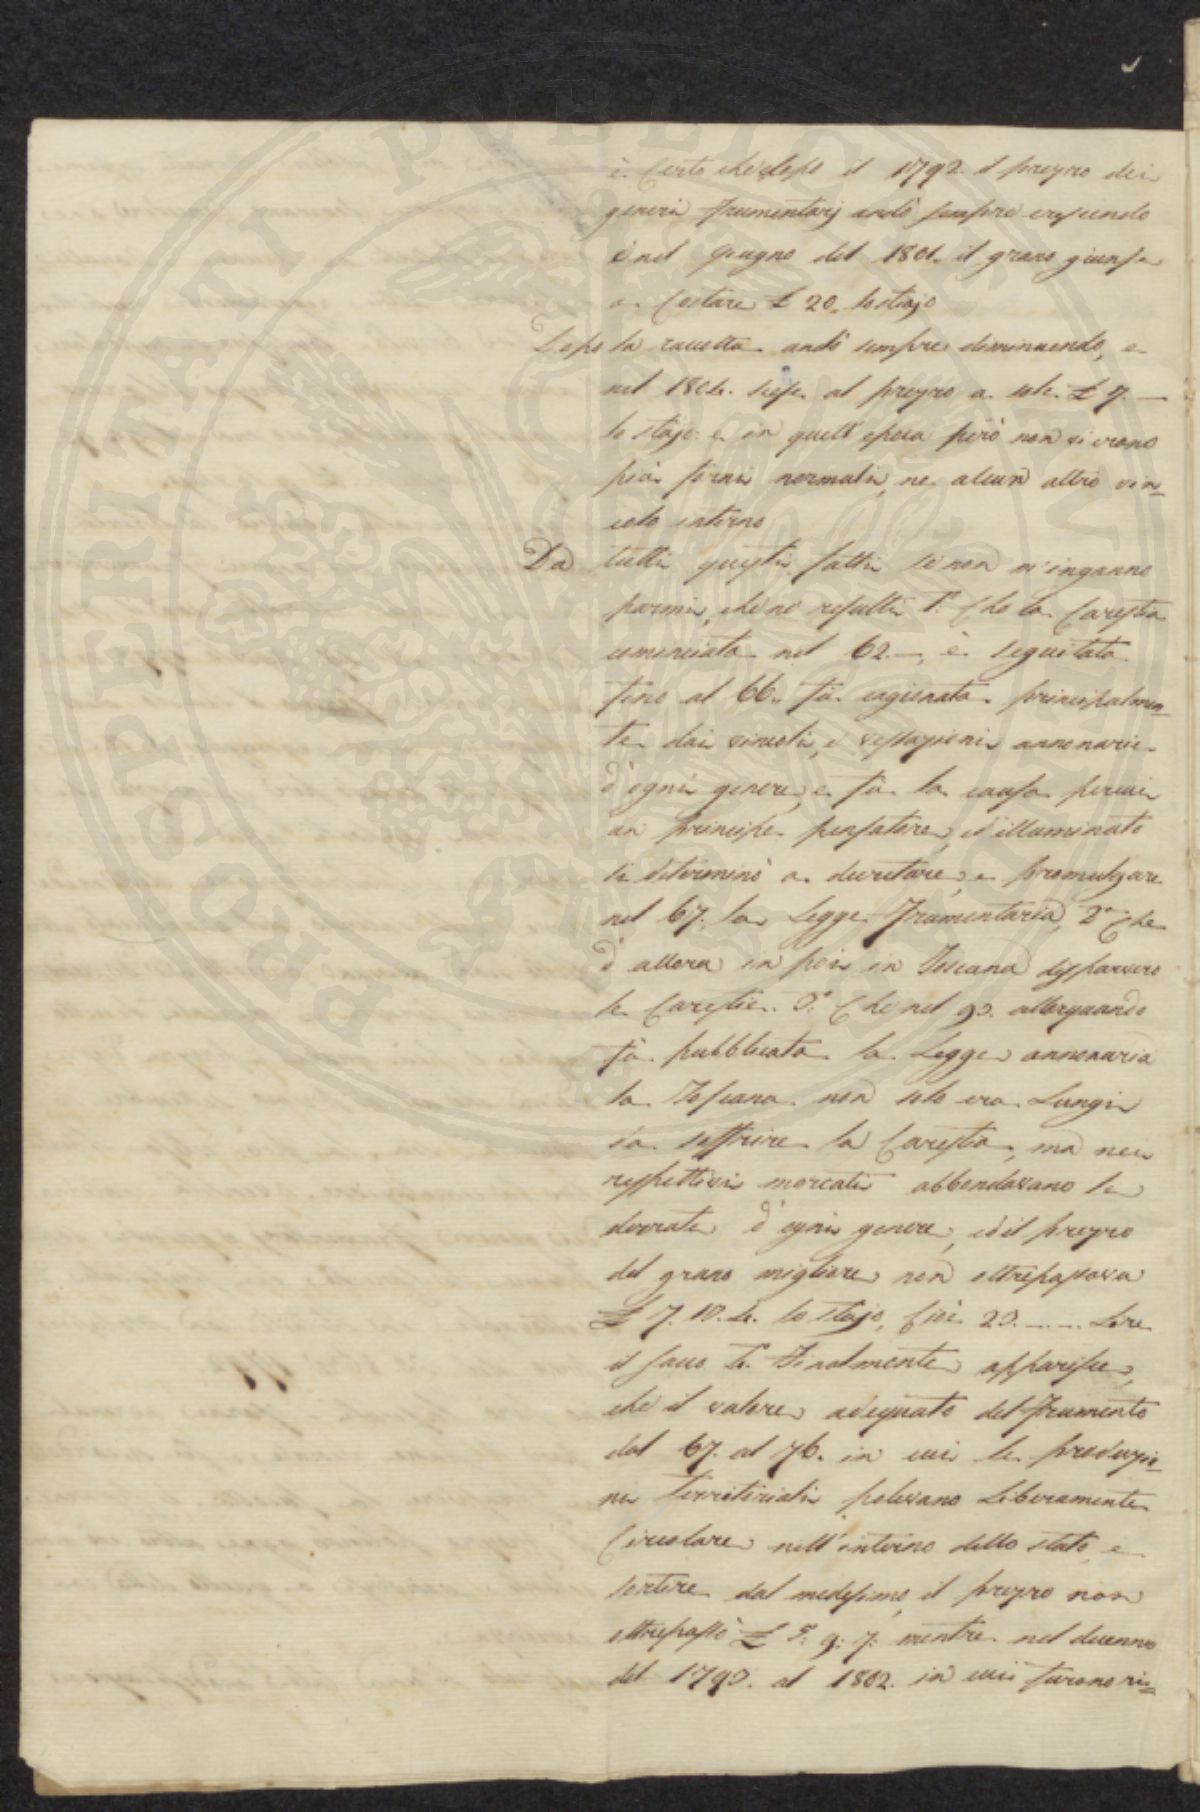 è Certo che dopo il 1792. il prezzo dei
generi frumentarj andò sempre crescendo
e nel Giugno del 1801. il grano giunse
a Costare £ 20. lo stajo
Dopo la raccolta andò sempre diminuendo, e
nel 1804. scese al prezzo a sole £ 7. —
lo stajo: e in quell'epoca però non vi erano
più forni normali, ne alcun altro vin=
colo interno
Da tutti questi fatti se non m'inganno
parmi, che ne resulti 1.° Che la Carestia
cominciata nel 62. —, e seguitata
fino al 66. fù cagionata principalmen=
te dai vincoli, e vessazioni annonarie
d'ogni genere, e fù la causa per cui
un Principe pensatore, ed illuminato
si determinò a decretare, e promulgare
nel 67. la Legge Frumentaria, 2.° Che
d'allora in poi in Toscana disparvero
le Carestie. 3.° Che nel 93. allorquando
fù pubblicata la Legge annonaria
la Toscana non solo era Lungi
da soffrire la Carestia, ma nei
respettivi mercati abbondavano le
derrate d'ogni genere, ed il prezzo
del grano migliore non oltrepassava
£ 7. 10. 4. lo stajo, cioè 23. — — Lire
il sacco 4.° Finalmente apparisce,
che il valore adeguato del Frumento
dal 67. al 76. in cui le produzio=
ni territoriali potevano Liberamente
Circolare nell'interno dello stato, e
sortire dal medesimo, il prezzo non
oltrepassò £ 5: 9: 7: mentre nel decennio
del 1793. al 1802. in cui furono ri=
PROSPERITATI PUBLICAE